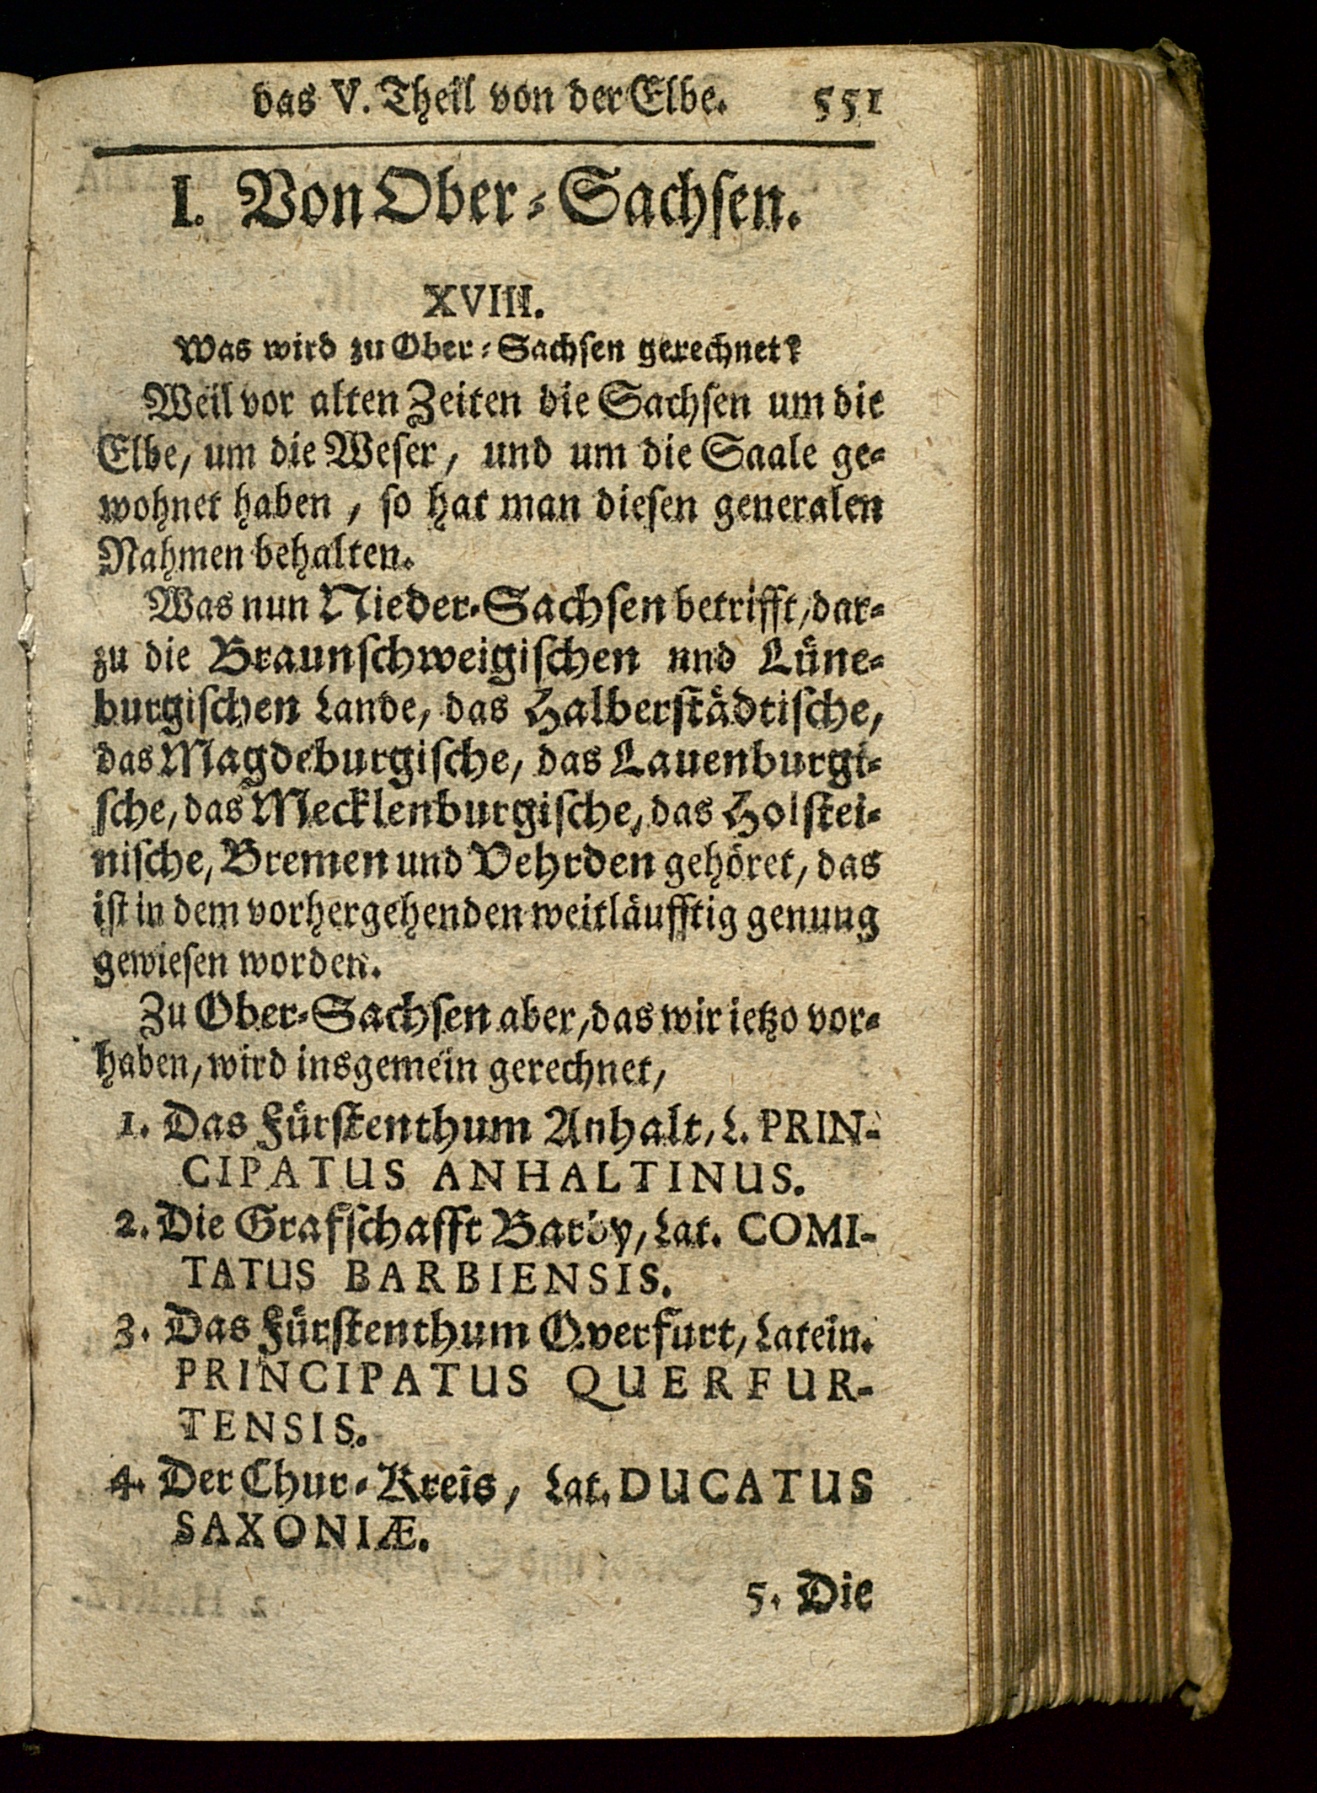 das V. Theil von der Elbe. 551
I. Von Ober-Sachsen.
XVIII.
Was wird zu Ober-Sachsen gerechnet?
Weil vor alten Zeiten die Sachsen um die
Elbe, um die Weser, und um die Saale ge-
wohnet haben, so hat man diesen generalen
Nahmen behalten.
Was nun Nieder-Sachsen betrifft, dar-
zu die Braunschweigischen und Lüne-
burgischen Lande, das Halberstädtische,
das Magdeburgische, das Lauenburgi-
sche, das Mecklenburgische, das Holstei-
nische, Bremen und Vehrden gehöret, das
ist in dem vorhergehenden weitläufftig genung
gewiesen worden.
Zu Ober-Sachsen aber, das wir ietzo vor-
haben, wird insgemein gerechnet,
1. Das Fürstenthum Anhalt, L. PRIN-
CIPATUS ANHALTINUS.
2. Die Grafschafft Barby, Lat. COMI-
TATUS BARBIENSIS.
3. Das Fürstenthum Qverfurt, Latein.
PRINCIPATUS QUERFUR-
TENSIS.
4. Der Chur-Kreis, Lat. DUCATUS
SAXONIÆ.
5. Die